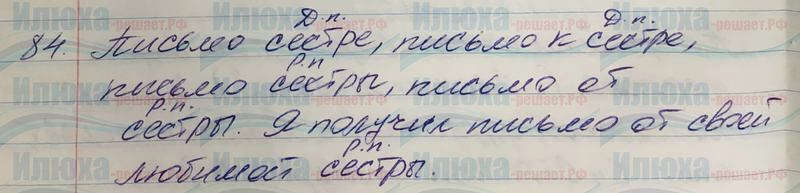 Д.п. Д.п.
84. Письмо сестре, письмо к сестре,
Р.п.
письмо сестры, письмо от
Р.п.
сестры. Я получил письмо от своей
Р.п.
любимой сестры.
Илюха-решает.РФ